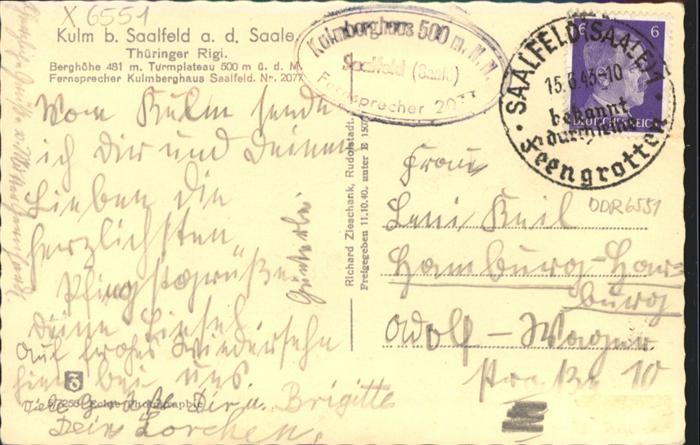 X 6551
Kulm b. Saalfeld a. d. Saale,
Thüringer Rigi.
Berghöhe 481 m. Turmplateau 500 m ü. d. M.
Fernsprecher Kulmberghaus Saalfeld. Nr. 2077
Kulmberghaus 500 m. N.N.
Saalfeld (Saale)
Fernsprecher 2077
SAALFELD (SAALE) 1
15.6.43-10
bekannt
durch seine
Feengrotten
6 6
DEUTSCHES REICH
Vom Kulm sende
ich Dir und Deinen
Lieben die
herzlichsten
Pfingstgrüße
Deine Liesel
Auf frohes Wiedersehn
hier bei uns.
Dir u. Brigitte
Dein Lorchen.
Richard Zieschank, Rudolstadt.
Freigegeben 11.10.40. unter E 1500
Frau
Leni Keil
Hamburg-Har-
burg
Adolf-Wagner
Straße 10
DDR6551
Echte Photographie